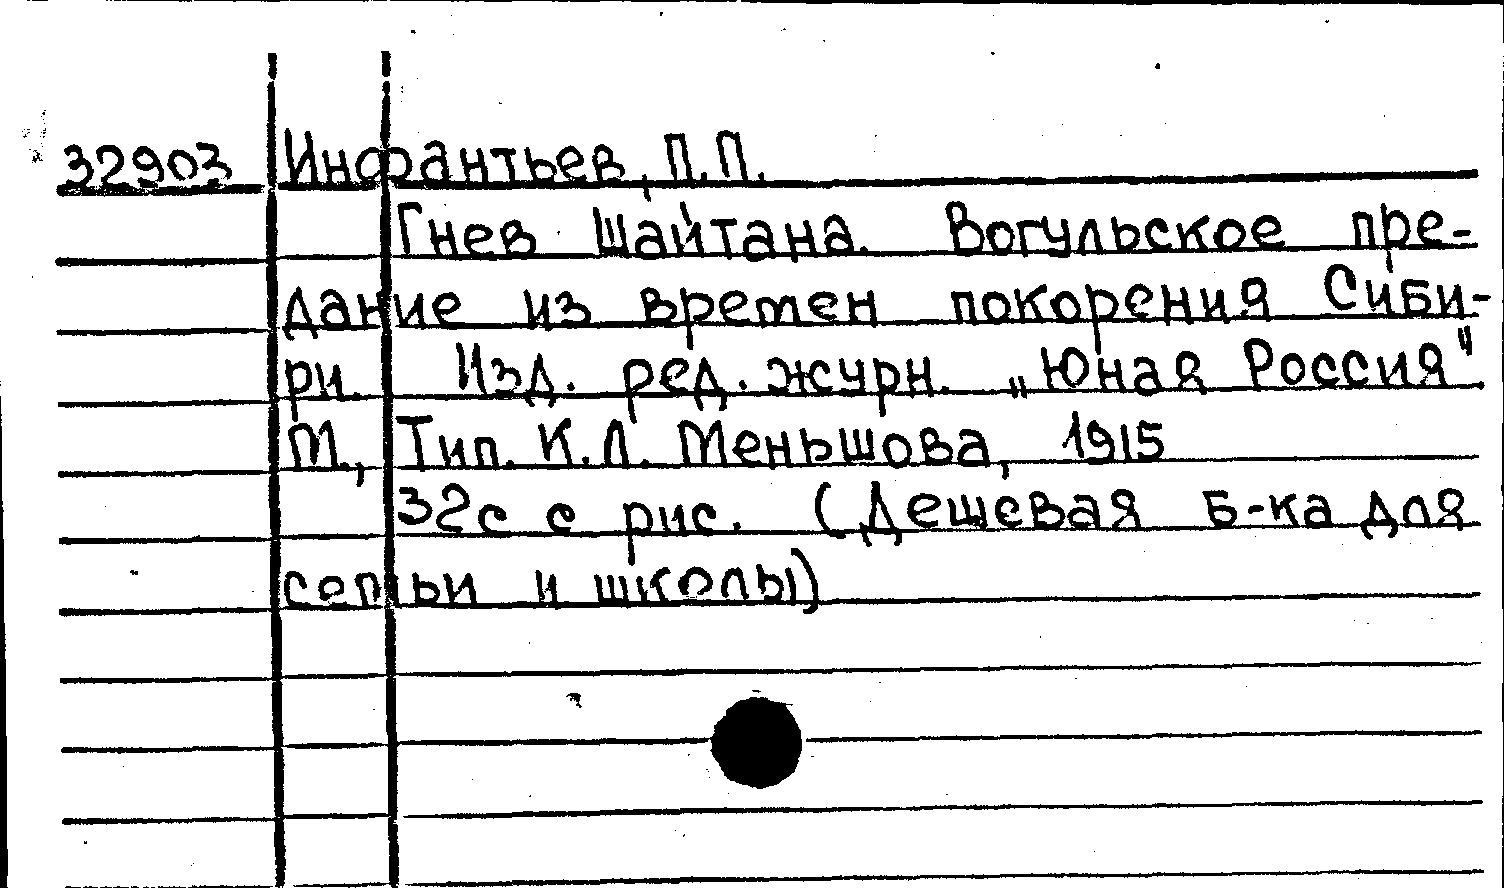 32903 Инфантьев, П.П.
Гнев Шайтана. Вогульское пре-
дание из времен покорения Сиби-
ри. Изд. ред. журн. „Юная Россия".
М., Тип. К.Л. Меньшова, 1915
32с с рис. (Дешевая б-ка для
семьи и школы)